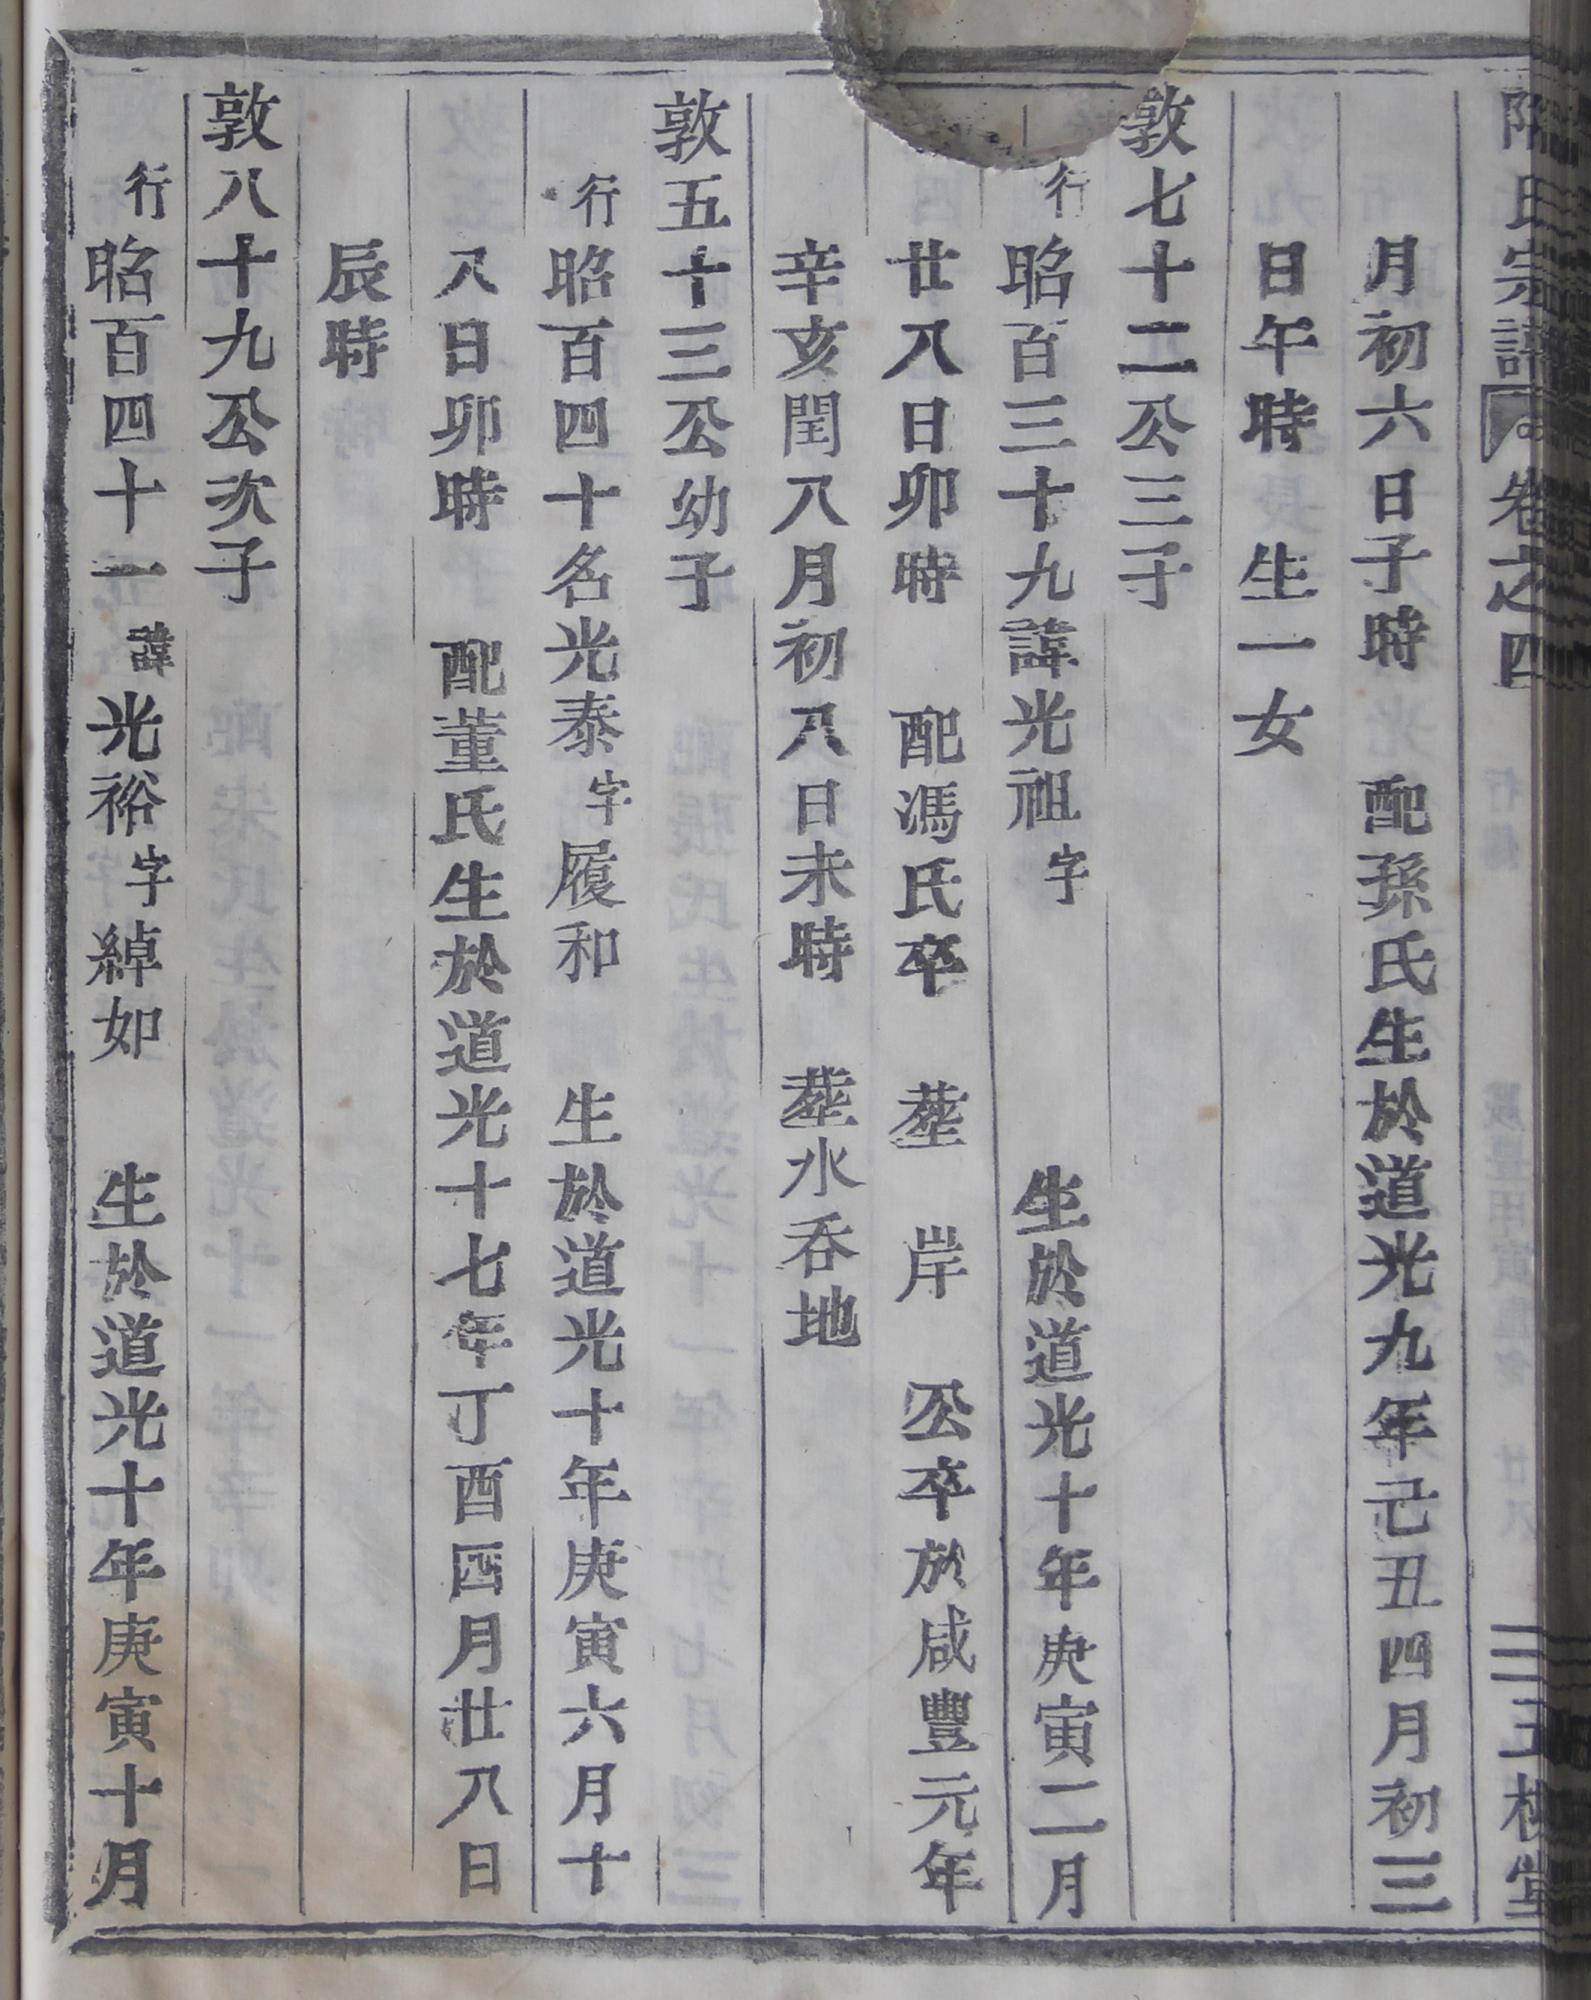 氏宗譜 卷之四
月初六日子時 配孫氏生於道光九年己丑四月初三
日午時 生一女
敦七十二公三子
行昭百三十九諱光祖字 生於道光十年庚寅二月
廿八日卯時 配馮氏卒 塟 岸 公卒於咸豐元年
辛亥閏八月初八日未時 塟水吞地
敦五十三公幼子
行昭百四十名光泰字履和 生於道光十年庚寅六月十
八日卯時 配董氏生於道光十七年丁酉四月廿八日
辰時
敦八十九公次子
行昭百四十一諱光裕字綽如 生於道光十年庚寅十月